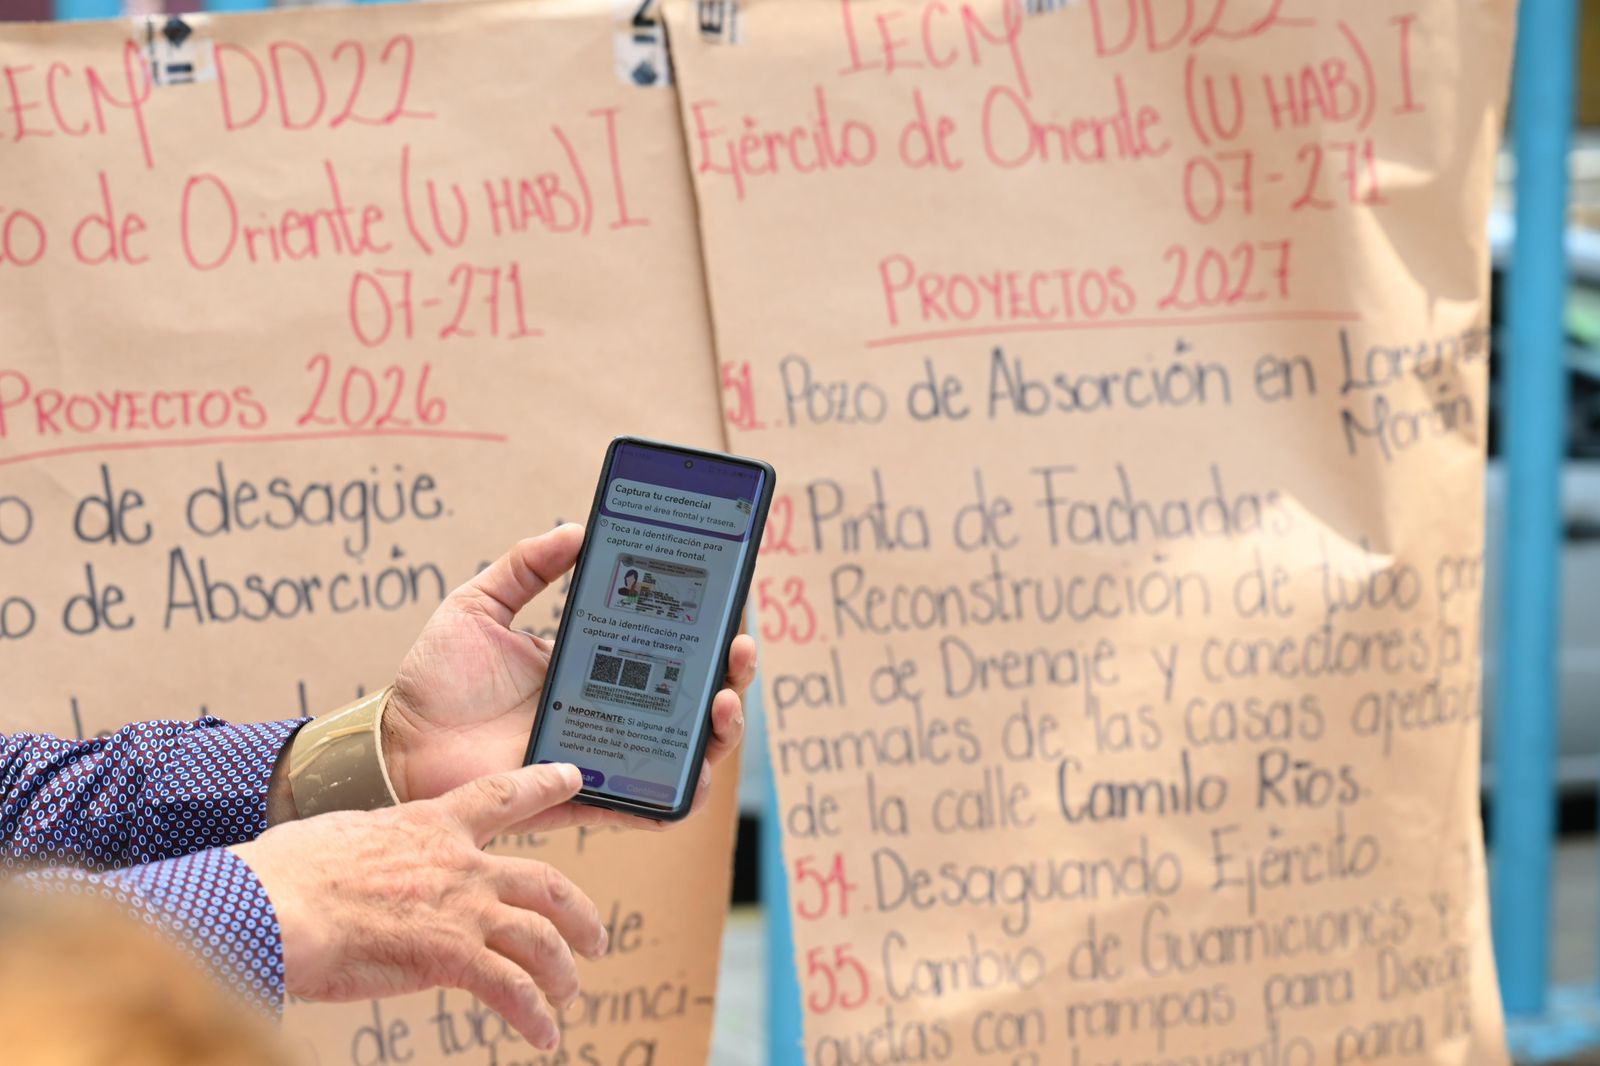 IECM DD22
de Oriente (U HAB) I
07-271
PROYECTOS 2026
de desagüe.
de Absorción
de.
de tubo princi-
a
IECM DD22
Ejército de Oriente (U HAB) I
07-271
PROYECTOS 2027
51. Pozo de Absorción en Lorenzo
Morán
52. Pinta de Fachadas
53. Reconstrucción de tubo
pal de Drenaje y conectores
ramales de las casas
de la calle Camilo Ríos.
54. Desaguando Ejército.
55. Cambio de Guarniciones y
quetas con rampas para
para
Captura tu credencial
Captura el área frontal y trasera.
Toca la identificación para
capturar el área frontal.
Toca la identificación para
capturar el área trasera.
IMPORTANTE: Si alguna de las
imágenes se ve borrosa, oscura,
saturada de luz o poco nítida,
vuelve a tomarla.
Continuar